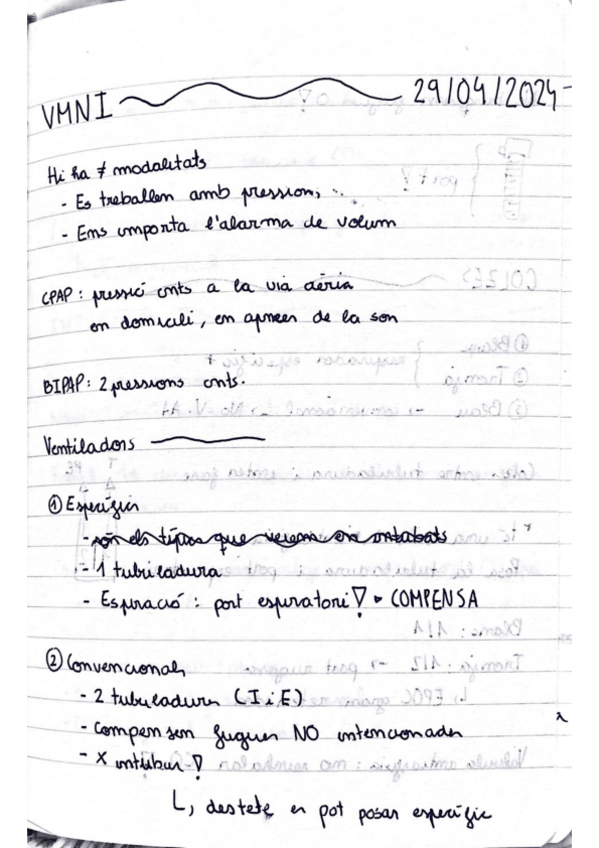 VMNI 29/04/2024
Hi ha ≠ modalitats
- Es treballen amb pressions, ...
- Ens importa l'alarma de volum
CPAP: pressió cnts a la via aèria
en domicili, en apnees de la son
BIPAP: 2 pressions cnts.
Ventiladors
① Específics
- són els típics que veiem en intubats
- 1 tubuladura
- Espiració: port espiratori! → COMPENSA
② Convencionals
- 2 tubuladures (I i E)
- Compensen fugues NO intencionades
- X intubar!
↳ destete es pot posar específic